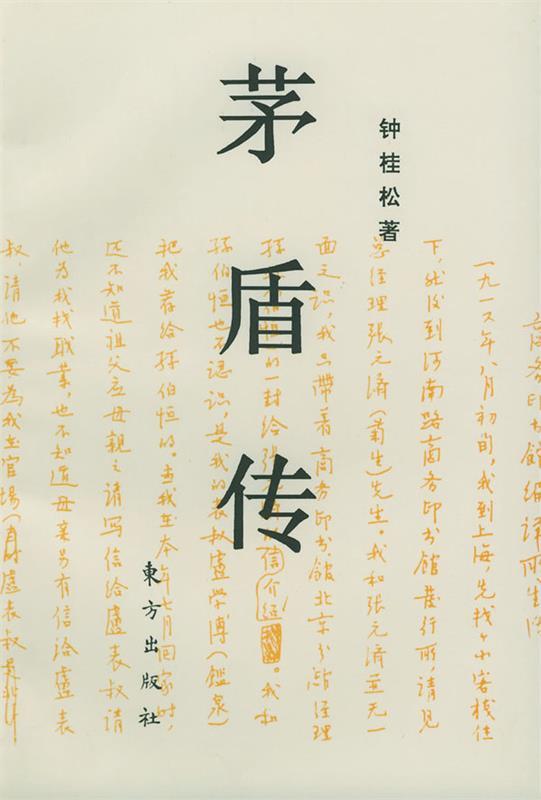 茅盾传
钟桂松著
東方出版社
商务印书館编译所生活
一九一六年八月初旬，我到上海，先找个小客栈住
下，然后到河南路商务印书館發行所，请见
总经理张元济（菊生）先生。我和张元济並无一
面之识，我只帶着商务印书館北京分館经理
孫伯恒的一封给张的信介绍。我和
孫伯恒也不認识，是我的表叔盧学溥（鑑泉）
把我荐给孫伯恒的。当我在本年七月回家时，
还不知道祖父应母親之请写信给盧表叔请
他为我找職業，也不知道母亲另有信给盧表
叔，请他不要為我在官場（盧表叔